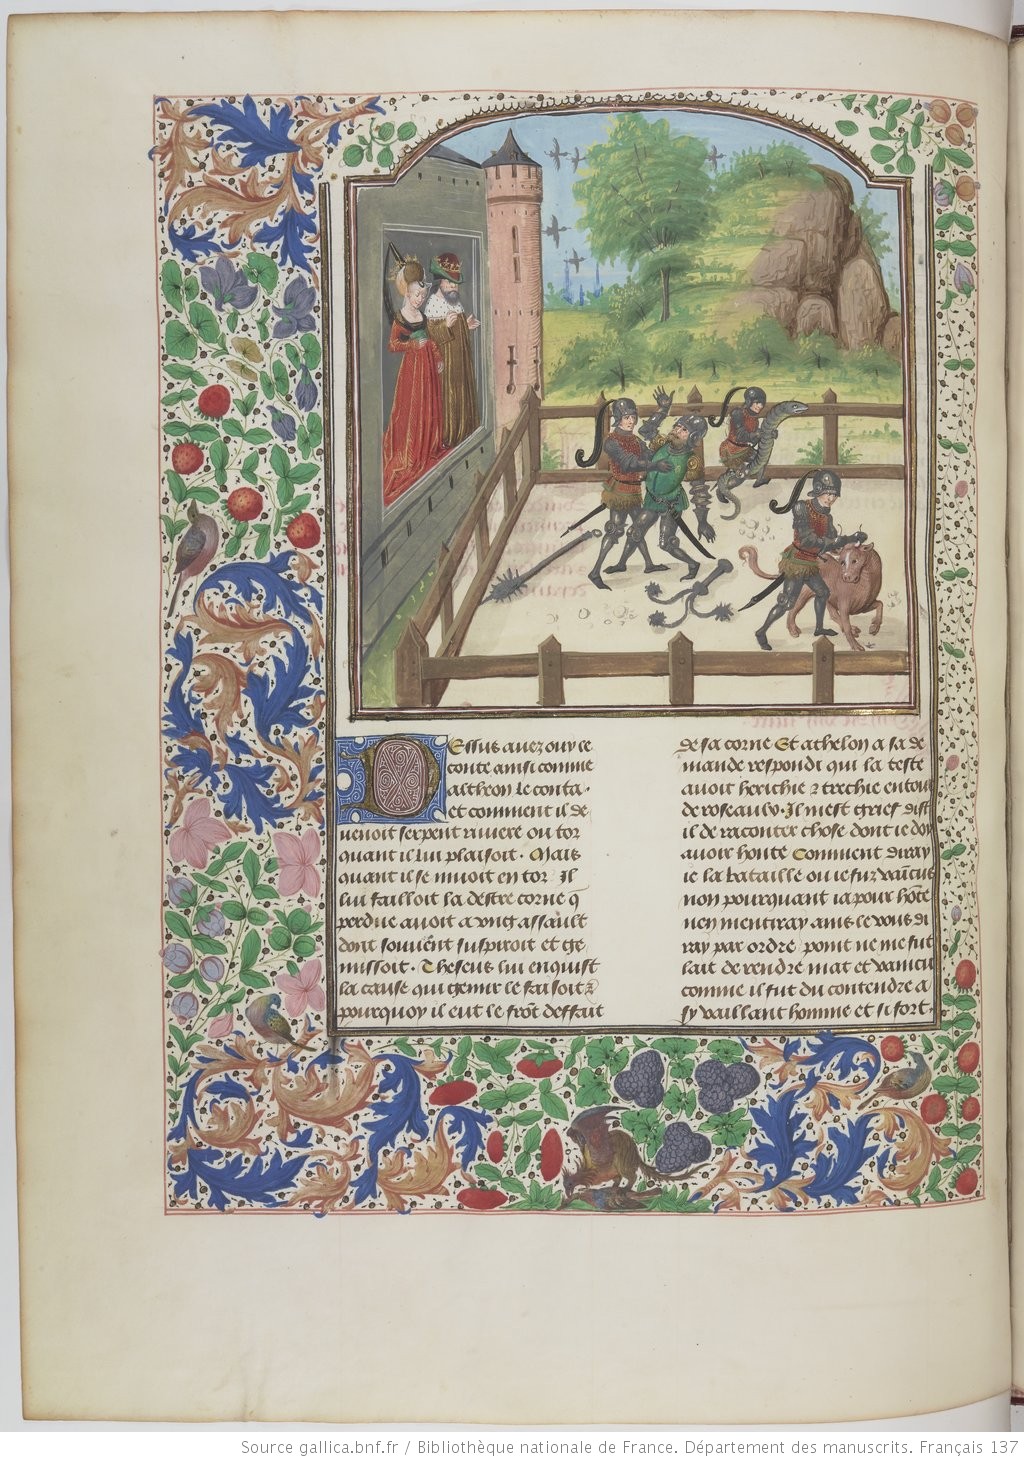 Dessus avez ouy ce
conte ainsi comme
altheon le conta.
et comment il de
uenoit serpent riuiere ou tor
quant il lui plaisoit. Mais
quant il se muoit en tor Il
lui failloit la destre corne q̄
perdue auoit a vng assault
dont souuēt suspiroit et ge
missoit. Theseus lui enquist
la cause qui gemir le faisoit et
pourquoy il eut le frōt deffait
de sa corne Et athelon a sa de
mande respondi qui la teste
auoit herichie et trechie entour
de roseaulx. Il mest grief dist
il de raconter chose dont ie doy
auoir honte Comment diray
ie la bataille ou ie fuz vaincus
non pourquant ia pour hōte
nen mentiray ains le vous di
ray par ordre point ne me fut
lait de rendre mat et vaincu
comme il fut du contendre a
sy vaillant homme et si fort.
Source gallica.bnf.fr / Bibliothèque nationale de France. Département des manuscrits. Français 137